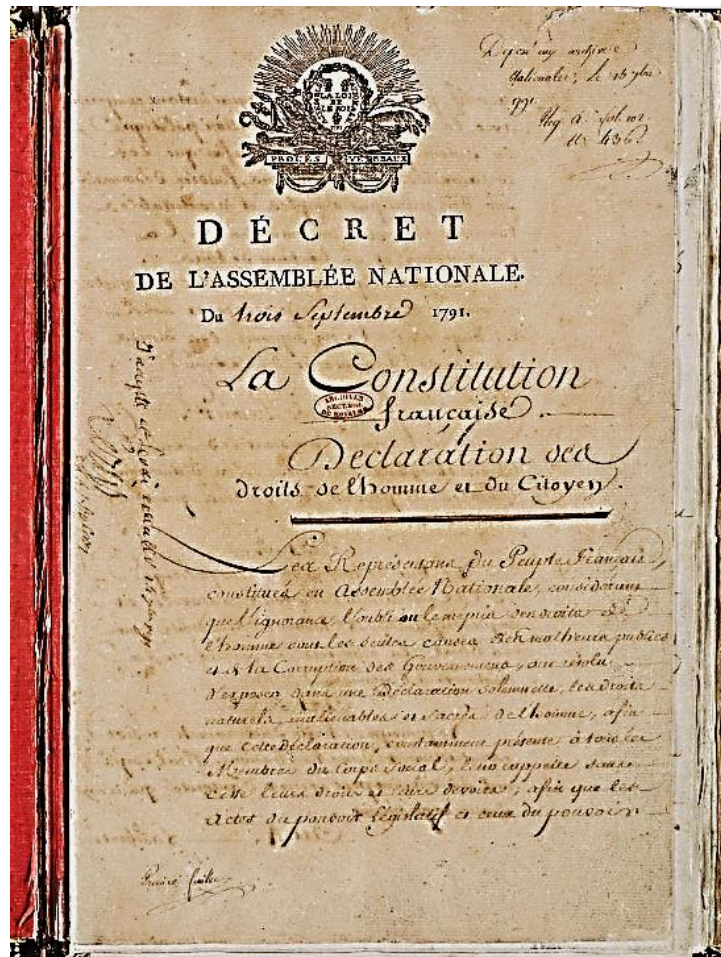 LA LOI
ET
LE ROI
PROCÈS VERBAUX
Déposé aux archives
nationales, le
DÉCRET
DE L'ASSEMBLÉE NATIONALE.
Du trois Septembre 1791.
La Constitution
française.
ARCHIVES
Déclaration des
droits de l'homme et du Citoyen.
Les Représentans du Peuple Français,
constitués en Assemblée Nationale, considérant
que l'ignorance, l'oubli ou le mépris des droits de
l'homme sont les seules causes des malheurs publics
et de la Corruption des Gouvernemens, ont résolu
d'exposer dans une Déclaration solemnelle, les droits
naturels, inaliénables et sacrés de l'homme, afin
que cette déclaration, constamment présente à tous les
Membres du Corps Social, leur rappelle sans
cesse leurs droits et leurs devoirs ; afin que les
Actes du pouvoir législatif et ceux du pouvoir
J'accepte et ferai exécuter